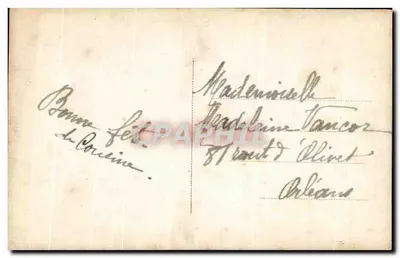 Bonne fête
du Cousine.
Mademoiselle
Madeleine Vancor
81 rout d'Olivet
Orléans